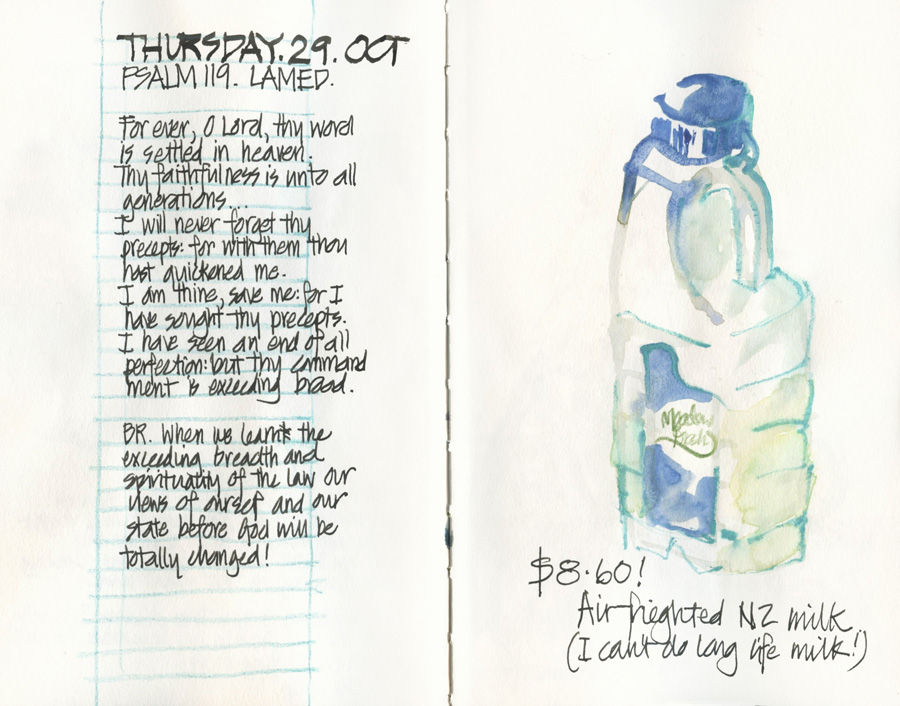 THURSDAY. 29. OCT
PSALM 119. LAMED.
For ever, O Lord, thy word
is settled in heaven.
Thy faithfulness is unto all
generations...
I will never forget thy
precepts: for with them thou
hast quickened me.
I am thine, save me: for I
have sought thy precepts.
I have seen an end of all
perfection: but thy command
ment is exceeding broad.
BR. When we learn* the
exceeding breadth and
spirituality of the law our
views of ourself and our
state before God will be
totally changed!
Meadow
Fresh
$8.60!
Air-frieghted NZ milk
(I can't do long life milk!)